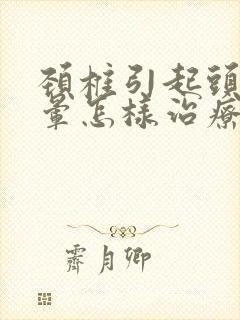 頸椎引起頭
暈怎樣治療
霽月卿